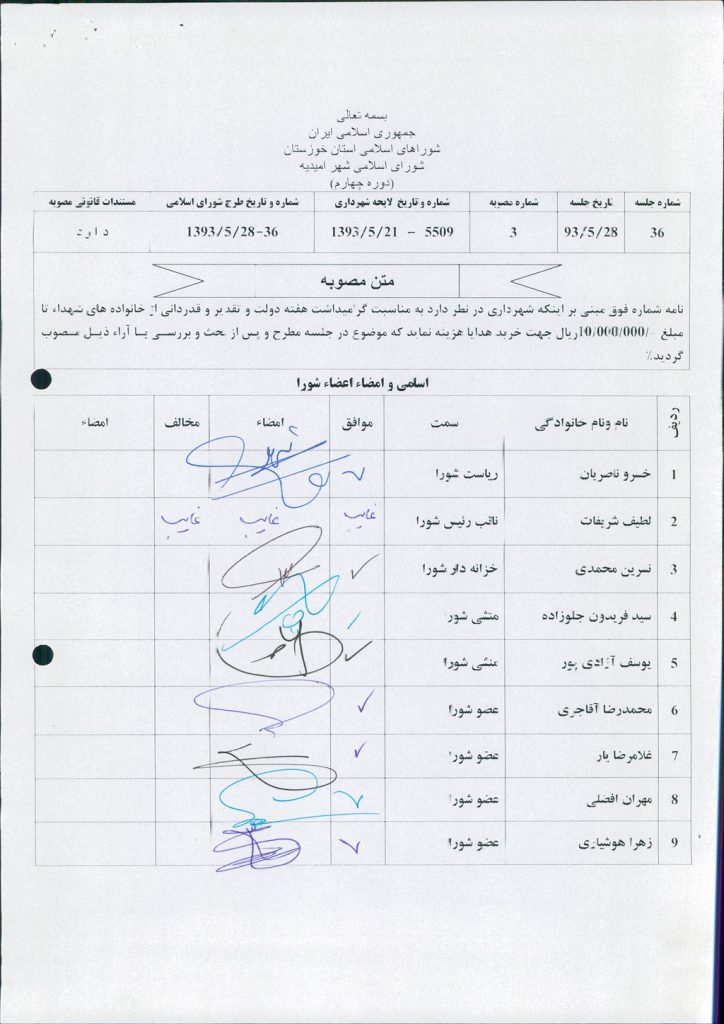 بسمه تعالی
جمهوری اسلامی ایران
شوراهای اسلامی استان خوزستان
شورای اسلامی شهر امیدیه
(دوره چهارم)
شماره جلسه تاریخ جلسه شماره مصوبه شماره و تاریخ لایحه شهرداری شماره و تاریخ طرح شورای اسلامی مستندات قانونی مصوبه
36 93/5/28 3 5509 - 1393/5/21 1393/5/28-36 دارد
متن مصوبه
نامه شماره فوق مبنی بر اینکه شهرداری در نظر دارد به مناسبت گرامیداشت هفته دولت و تقدیر و قدردانی از خانواده های شهداء تا
مبلغ -/10/000/000ریال جهت خرید هدایا هزینه نماید که موضوع در جلسه مطرح و پس از بحث و بررسی با آراء ذیل مصوب
گردید٪
اسامی و امضاء اعضاء شورا
ردیف نام ونام خانوادگی سمت موافق امضاء مخالف امضاء
1 خسرو ناصریان ریاست شورا
2 لطیف شریفات نائب رئیس شورا غایب غایب غایب
3 نسرین محمدی خزانه دار شورا
4 سید فریدون جلوزاده منشی شورا
5 یوسف آزادی پور منشی شورا
6 محمدرضا آقاجری عضو شورا
7 غلامرضا یار عضو شورا
8 مهران افضلی عضو شورا
9 زهرا هوشیاری عضو شورا